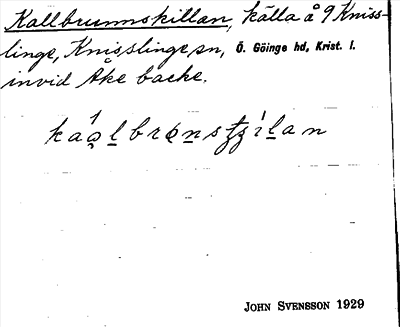 Kallbrunnskillan, källa å 9 Kniss-
linge, Knisslinge sn, Ö. Göinge hd, Krist. l.
invid Åke backe.
JOHN SVENSSON 1929